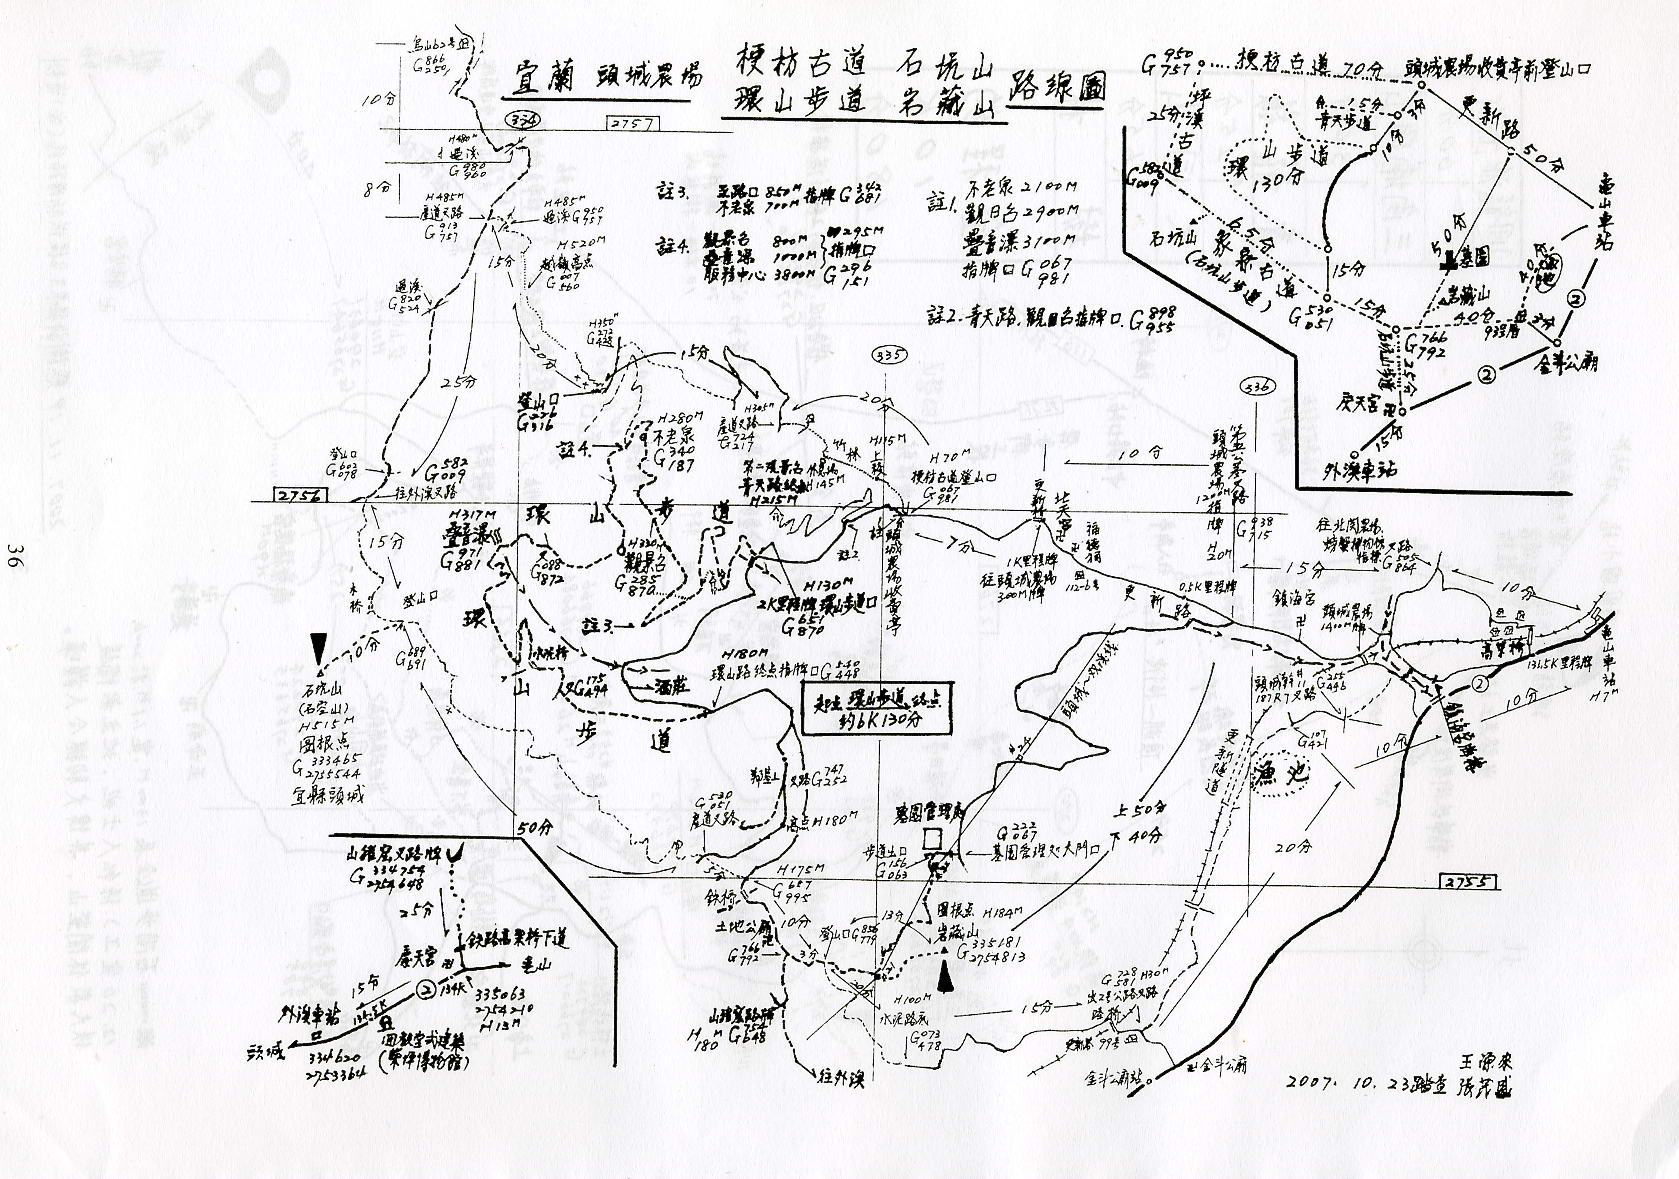 宜蘭 頭城農場 梗枋古道 石坑山
環山步道 岩藏山 路線圖
烏山62号
G 866
250
10分
334
2757
H480M
過溪
G 980
960
8分
H485M
產道叉路
G 913
757
H485M
過溪 G 950
957
H520M
越嶺高点
G 007
560
15分
過溪
G 820
524
25分
20分
H350M
G 272
428
15分
登山口
G 276
316
註3. 至路口 850M 指牌 G 342
不老泉 700M 687
註4. 觀景台 800M 295M
疊音瀑 1000M 指牌口
服務中心 3800M G 296
151
註1. 不老泉 2100M
觀日台 2900M
疊音瀑 3100M
指牌口 G 067
981
註2. 青天路.觀日台指牌口. G 898
955
G 950
757
梗枋古道 70分 頭城農場收費亭前登山口
25分
坪溪古道
G 582
009
環山步道
130分
15分
青天步道
3分
10分
更新路
50分
龜山車站
石坑山
65分
象索古道
(石坑山步道)
15分
G 530
051
15分
50分
墓園
岩藏山
40分
40分
漁池
93号
3分
②
金斗公廟
G 766
792
25分
慶天宮
②
15分
外澳車站
335
336
20分
註4.
H280M
不老泉
G 340
187
H305M
產道叉路
G 724
217
竹林
H115M
H70M
梗枋古道登山口
G 067
981
第二觀景台
青天路終点
H215M
休息場
H145M
10分
登山口
G 603
078
G 582
009
往外澳叉路
2756
H317M
疊音瀑
G 971
881
環山步道
G 088
872
H330M
觀景台
G 285
870
15分
木橋
登山口
註3.
H130M
2K里程牌 環山步道口
G 651
870
註2
註1
頭城農場收費亭
7分
更新林
北天宮
福德廟
1K里程牌
往頭城農場
300M牌
112-6号
頭城農場
1200M指牌
H20M
G 938
715
往北關農場.
螃蟹博物館
指標叉路
G 505
864
15分
10分
更新路
0.5K里程牌
鎮海宮
頭城農場
1400M牌
高架橋
131.5K里程牌
龜山車站
H7M
②
10分
10分
石坑山
(石空山)
H515M
圖根点
G 333465
2755544
宜縣頭城
10分
G 689
691
環山步道
水泥橋
G 175
494
酒莊
H180M
環山路終点指牌口 G 540
448
起点 環山步道 終点
約6K130分
G 747
252
叉路
G 530
051
產道叉路
高点 H180M
50分
頭城~
#24
上50分
下40分
頭城
187R7叉路
G 255
446
G 107
421
更新隧道
漁池
20分
墓園管理處
G 222
067
墓園管理処大門口
步道出口
G 156
063
2755
5分
H175M
G 657
995
鉄橋
土地公廟
G 766
792
10分
3分
登山口 G 856
779
13分
圖根点 H184M
岩藏山
G 335181
2754813
20分
山鑵窯路牌
H M G 754
180 648
往外澳
H100M
水泥路底
G 073
478
15分
G 728 H30M
581
出2号公路叉路
路橋
更新路99号
金斗公廟站
金斗公廟
山鑵窯叉路牌
G 334754
2754648
25分
鉄路高架橋下道
慶天宮
龜山
15分
②
134K
外澳車站
135.5K
335063
2754210
H13M
頭城
334620
2753364
回教堂式建築
(蘭陽博物館)
王源來
2007. 10. 23踏查 張茂盛
36